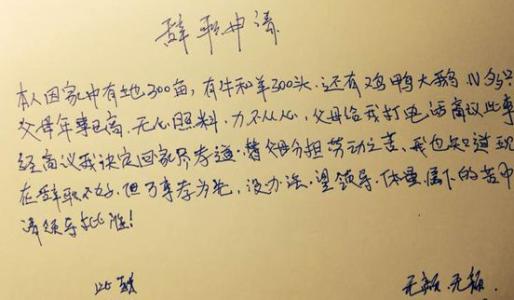 辞职申请
本人因家中有土地300亩，有牛和羊300头，还有鸡鸭大鹅
父母年事已高，无心照料，力不从心，父母给我打电话商议此事
经商议我决定回家尽孝道，替父母分担劳动之苦，我也知道现
在辞职不好，但百事孝为先，没办法，望领导，体量属下的苦中
请领导批准！
此致